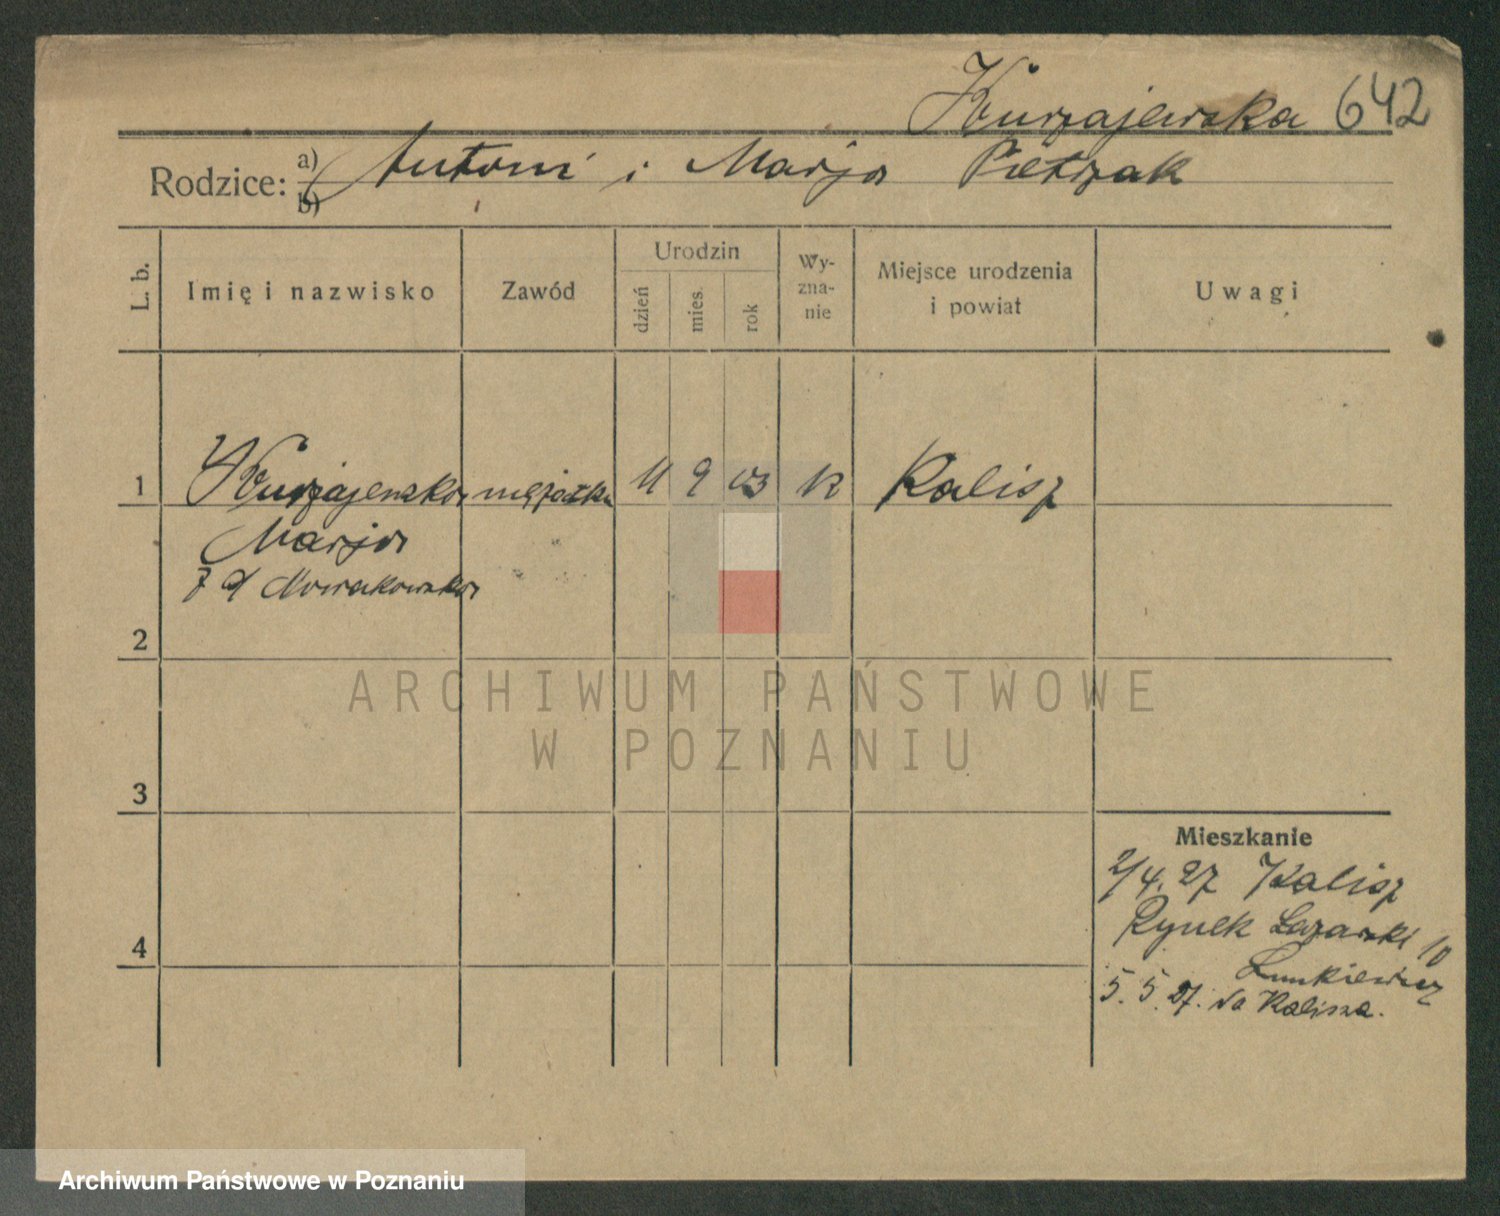 Kurzajewska 642
Rodzice: a) Antoni i Marja Pietrzak
b)
L. b.
Imię i nazwisko
Zawód
Urodzin
dzień
mies.
rok
Wy-
zna-
nie
Miejsce urodzenia
i powiat
Uwagi
1 Kurzajewska mężatka 11 9 03 k Kalisz
Marja
z d Nowakowska
2
3
4
Mieszkanie
2/4. 27 Kalisz
Rynek Łazarski 10
5. 5. 27. do Kalisza.
ARCHIWUM PAŃSTWOWE
W POZNANIU
Archiwum Państwowe w Poznaniu